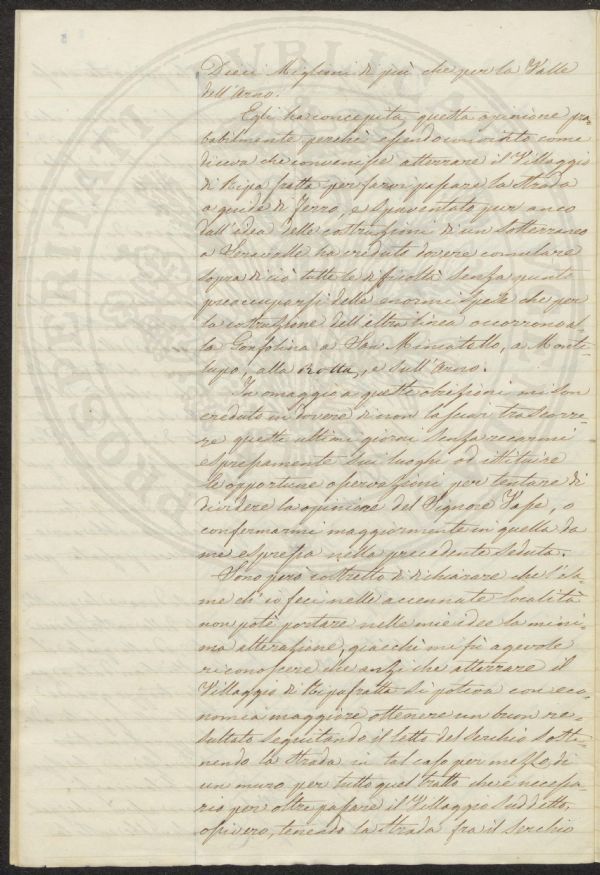 Dieci Miglioni di più che per la Valle
dell'Arno.
Egli ha concepita questa opinione pro-
babilmente perchè essendo convinto come
diceva che convenisse atterrare il Villaggio
di Ripafratta per farvi passare la Strada
a guide di Ferro, e spaventato pur anco
dell'idea delle costruzioni di un Sotterraneo
a Seravalle ha creduto dovere comulare
sopra di ciò tutte le dificoltà senza punto
preoccuparsi delle enormi spese che per
la costruzione dell'altra linea occorrono al-
la Gonfolina a San Miniatello, a Monte-
lupo, alla Rotta, e sull'Arno.
In omaggio a queste obiezioni mi son
creduto in dovere di non lasciar trascorre-
re questi ultimi giorni senza recarmi
espressamente sui luoghi ad istituire
le opportune operazioni per tentare di
dividere la opinione del Signore
confermarmi maggiormente in quella da
me espressa nella precedente Seduta.
Sono però costretto di dichiarare che l'esa-
me ch'io feci nelle accennate località
non potè portare nelle mie idee la mini-
ma alterazione, giacchè mi fù agevole
riconoscere che anzi che atterrare il
Villaggio di Ripafratta si poteva con eco-
nomia maggiore ottenere un buon re-
sultato seguitando il letto del Serchio sotte-
nendo la Strada in tal caso per mezzo, di
un muro per tutto quel tratto che è necessa-
rio per oltrepassare il Villaggio suddetto,
ossivero, tenendo la Strada fra il Serchio
PROSPERITATI PUBLICAE